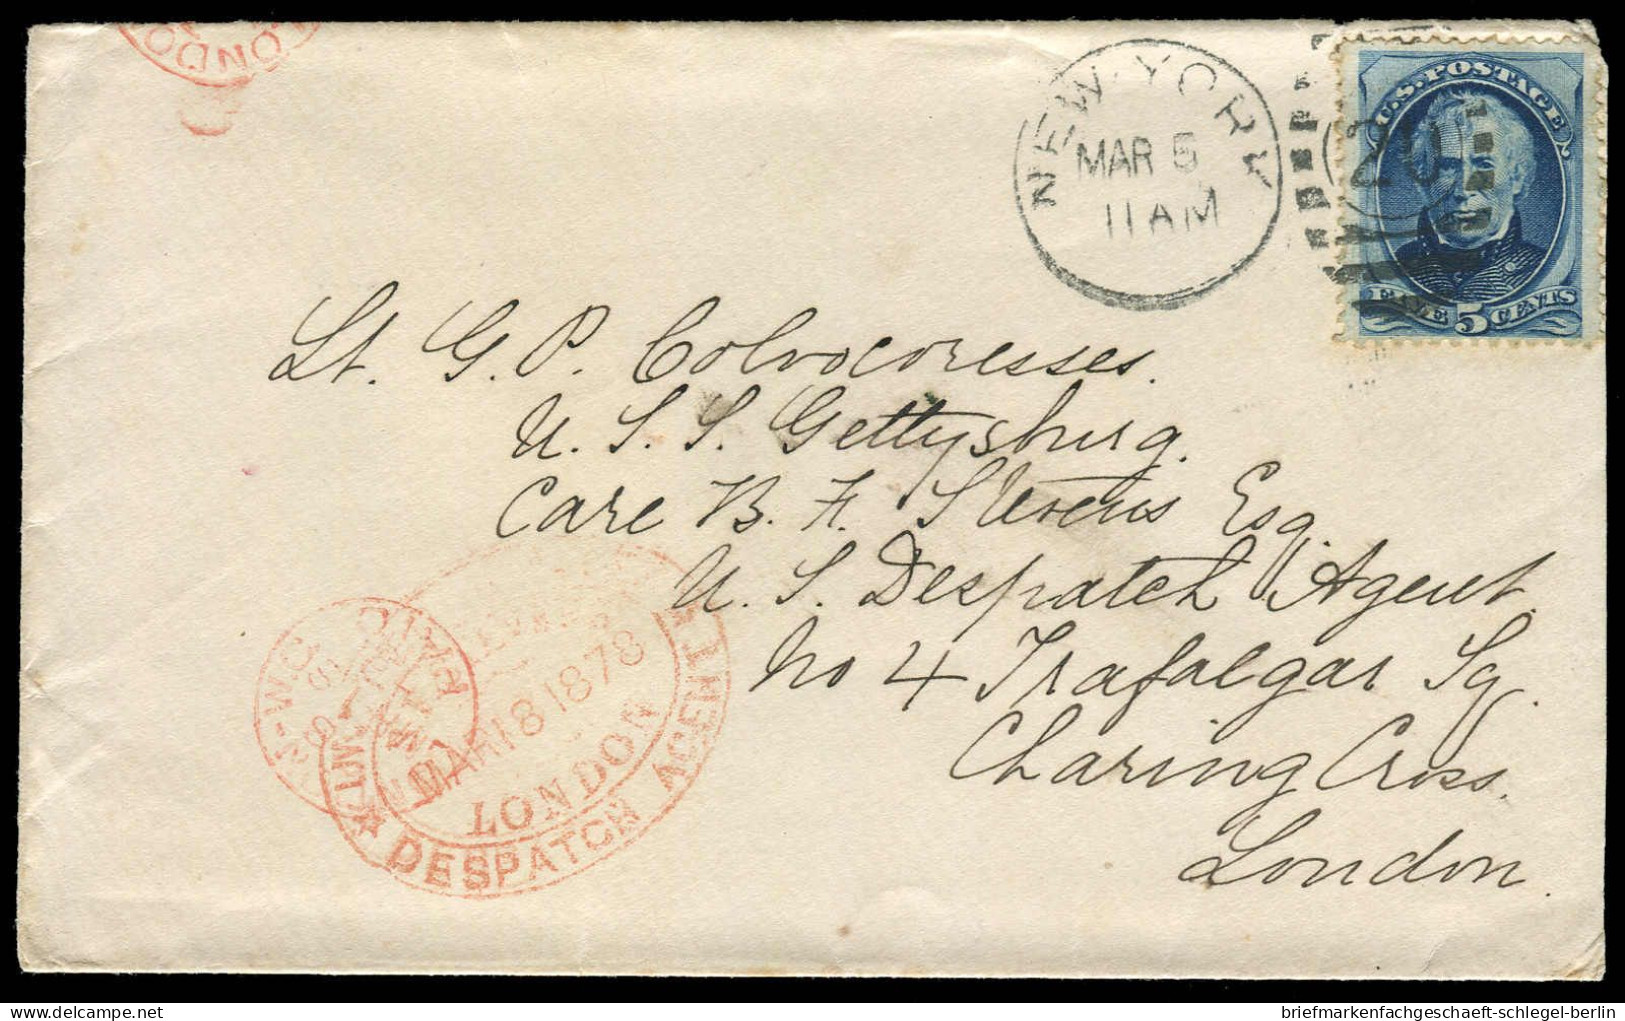 LONDO
NEW YORK
MAR 5
11 AM
20
U.S. POSTAGE
FIVE 5 CENTS
Lt. G. P. Colvocoresses.
U. S. S. Gettysburg.
Care B. F. Stevens Esq.
U. S. Despatch Agent.
No 4 Trafalgar Sq.
Charing Cross.
London.
PAID
MAR 18 1878
LONDON
DESPATCH AGENT
briefmarkenfachgeschaeft-schlegel-berlin